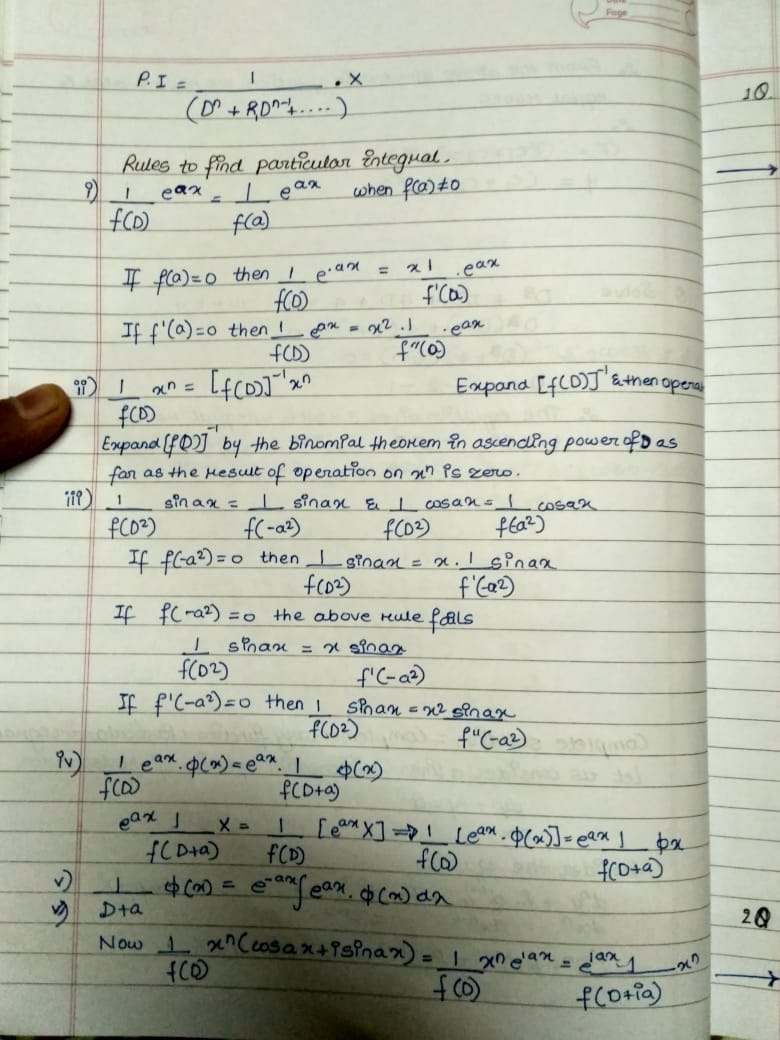 Page
P.I = 1/(Dⁿ + P₁Dⁿ⁻¹+....) . X
1Q
Rules to find particular integral.
i) 1/f(D) e^ax = 1/f(a) e^ax when f(a)≠0
If f(a)=0 then 1/f(D) e^.ax = x 1/f'(a) .e^ax
If f'(a)=0 then 1/f(D) e^ax = x² .1/f"(a) .e^ax
ii) 1/f(D) xⁿ = [f(D)]⁻¹xⁿ Expand [f(D)]⁻¹ & then opera
Expand [f(D)]⁻¹ by the binomial theorem in ascending power of D as
far as the result of operation on xⁿ is zero.
iii) 1/f(D²) sin ax = 1/f(-a²) sinax & 1/f(D²) cosax = 1/f(-a²) cosax
If f(-a²)=0 then 1/f(D²) sinax = x. 1/f'(-a²) sinax
If f(-a²)=0 the above rule fails
1/f(D²) sinax = x sinax/f'(-a²)
If f'(-a²)=0 then 1/f(D²) sinax = x² sinax/f"(-a²)
iv) 1/f(D) e^ax.ϕ(x) = e^ax. 1/f(D+a) ϕ(x)
e^ax 1/f(D+a) X = 1/f(D) [e^ax X] ⇒ 1/f(D) [e^ax.ϕ(x)] = e^ax 1/f(D+a) ϕx
v) 1/D+a ϕ(x) = e^-ax∫e^ax.ϕ(x) dx
2Q
Now 1/f(D) xⁿ(cosax+isinax) = 1/f(D) xⁿ e^iax = e^iax 1/f(D+ia) xⁿ